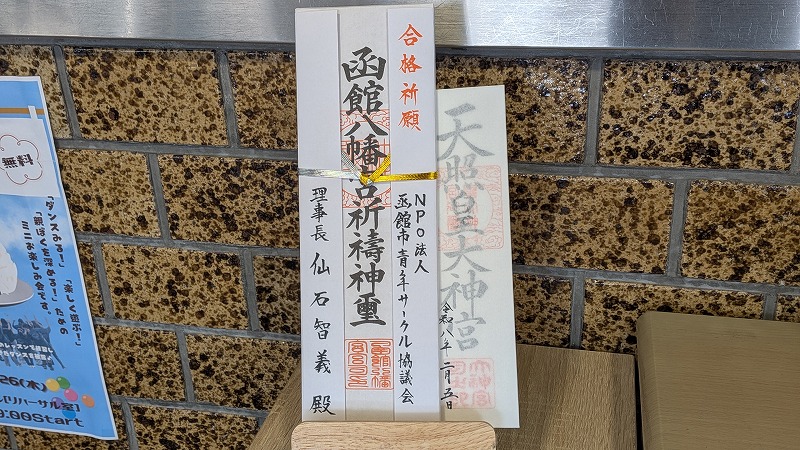 合格祈願
函館八幡宮祈祷神璽
NPO法人
函館市青年サークル協議会
理事長 仙石智義 殿
天照皇大神宮
令和八年二月五日
無料
「ダンスみる!」「楽しく遊ぶ!」
「親ぼくを深める!」ための
ミニお楽しみ会です。
26(木)
リハーサル室]
:00Start